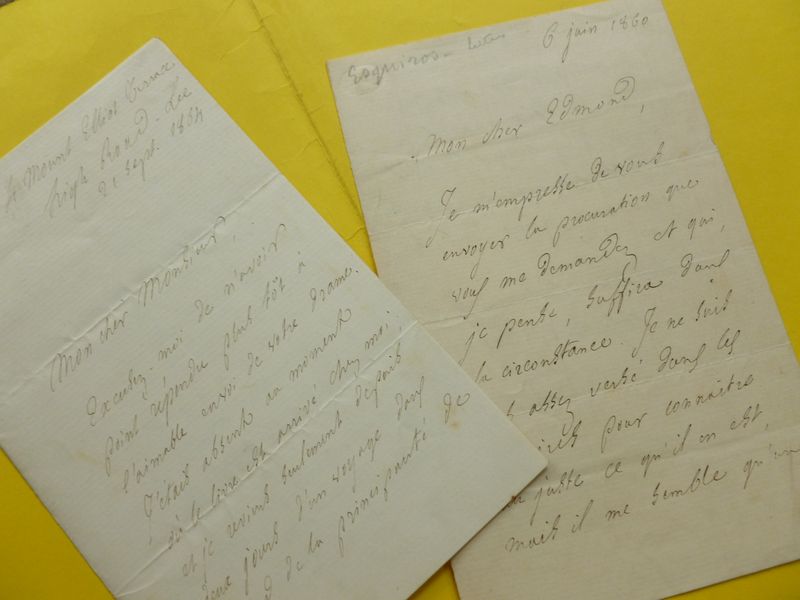 4 Mount Elliot
High Road. Lee
21 Sept. 1864
Mon cher Monsieur,
Excusez-moi de n'avoir
point répondu plus tôt à
l'aimable envoi de votre drame.
J'étais absent au moment
où le livre est arrivé chez moi,
et je reviens seulement depuis
deux jours d'un voyage dans
de la principauté de
Esquiros
6 juin 1860
Mon cher Edmond,
Je m'empresse de vous
envoyer la procuration que
vous me demandez et qui,
je pense, suffira dans
la circonstance. Je ne suis
assez versé dans les
pour connaître
juste ce qu'il en est,
mais il me semble qu'un